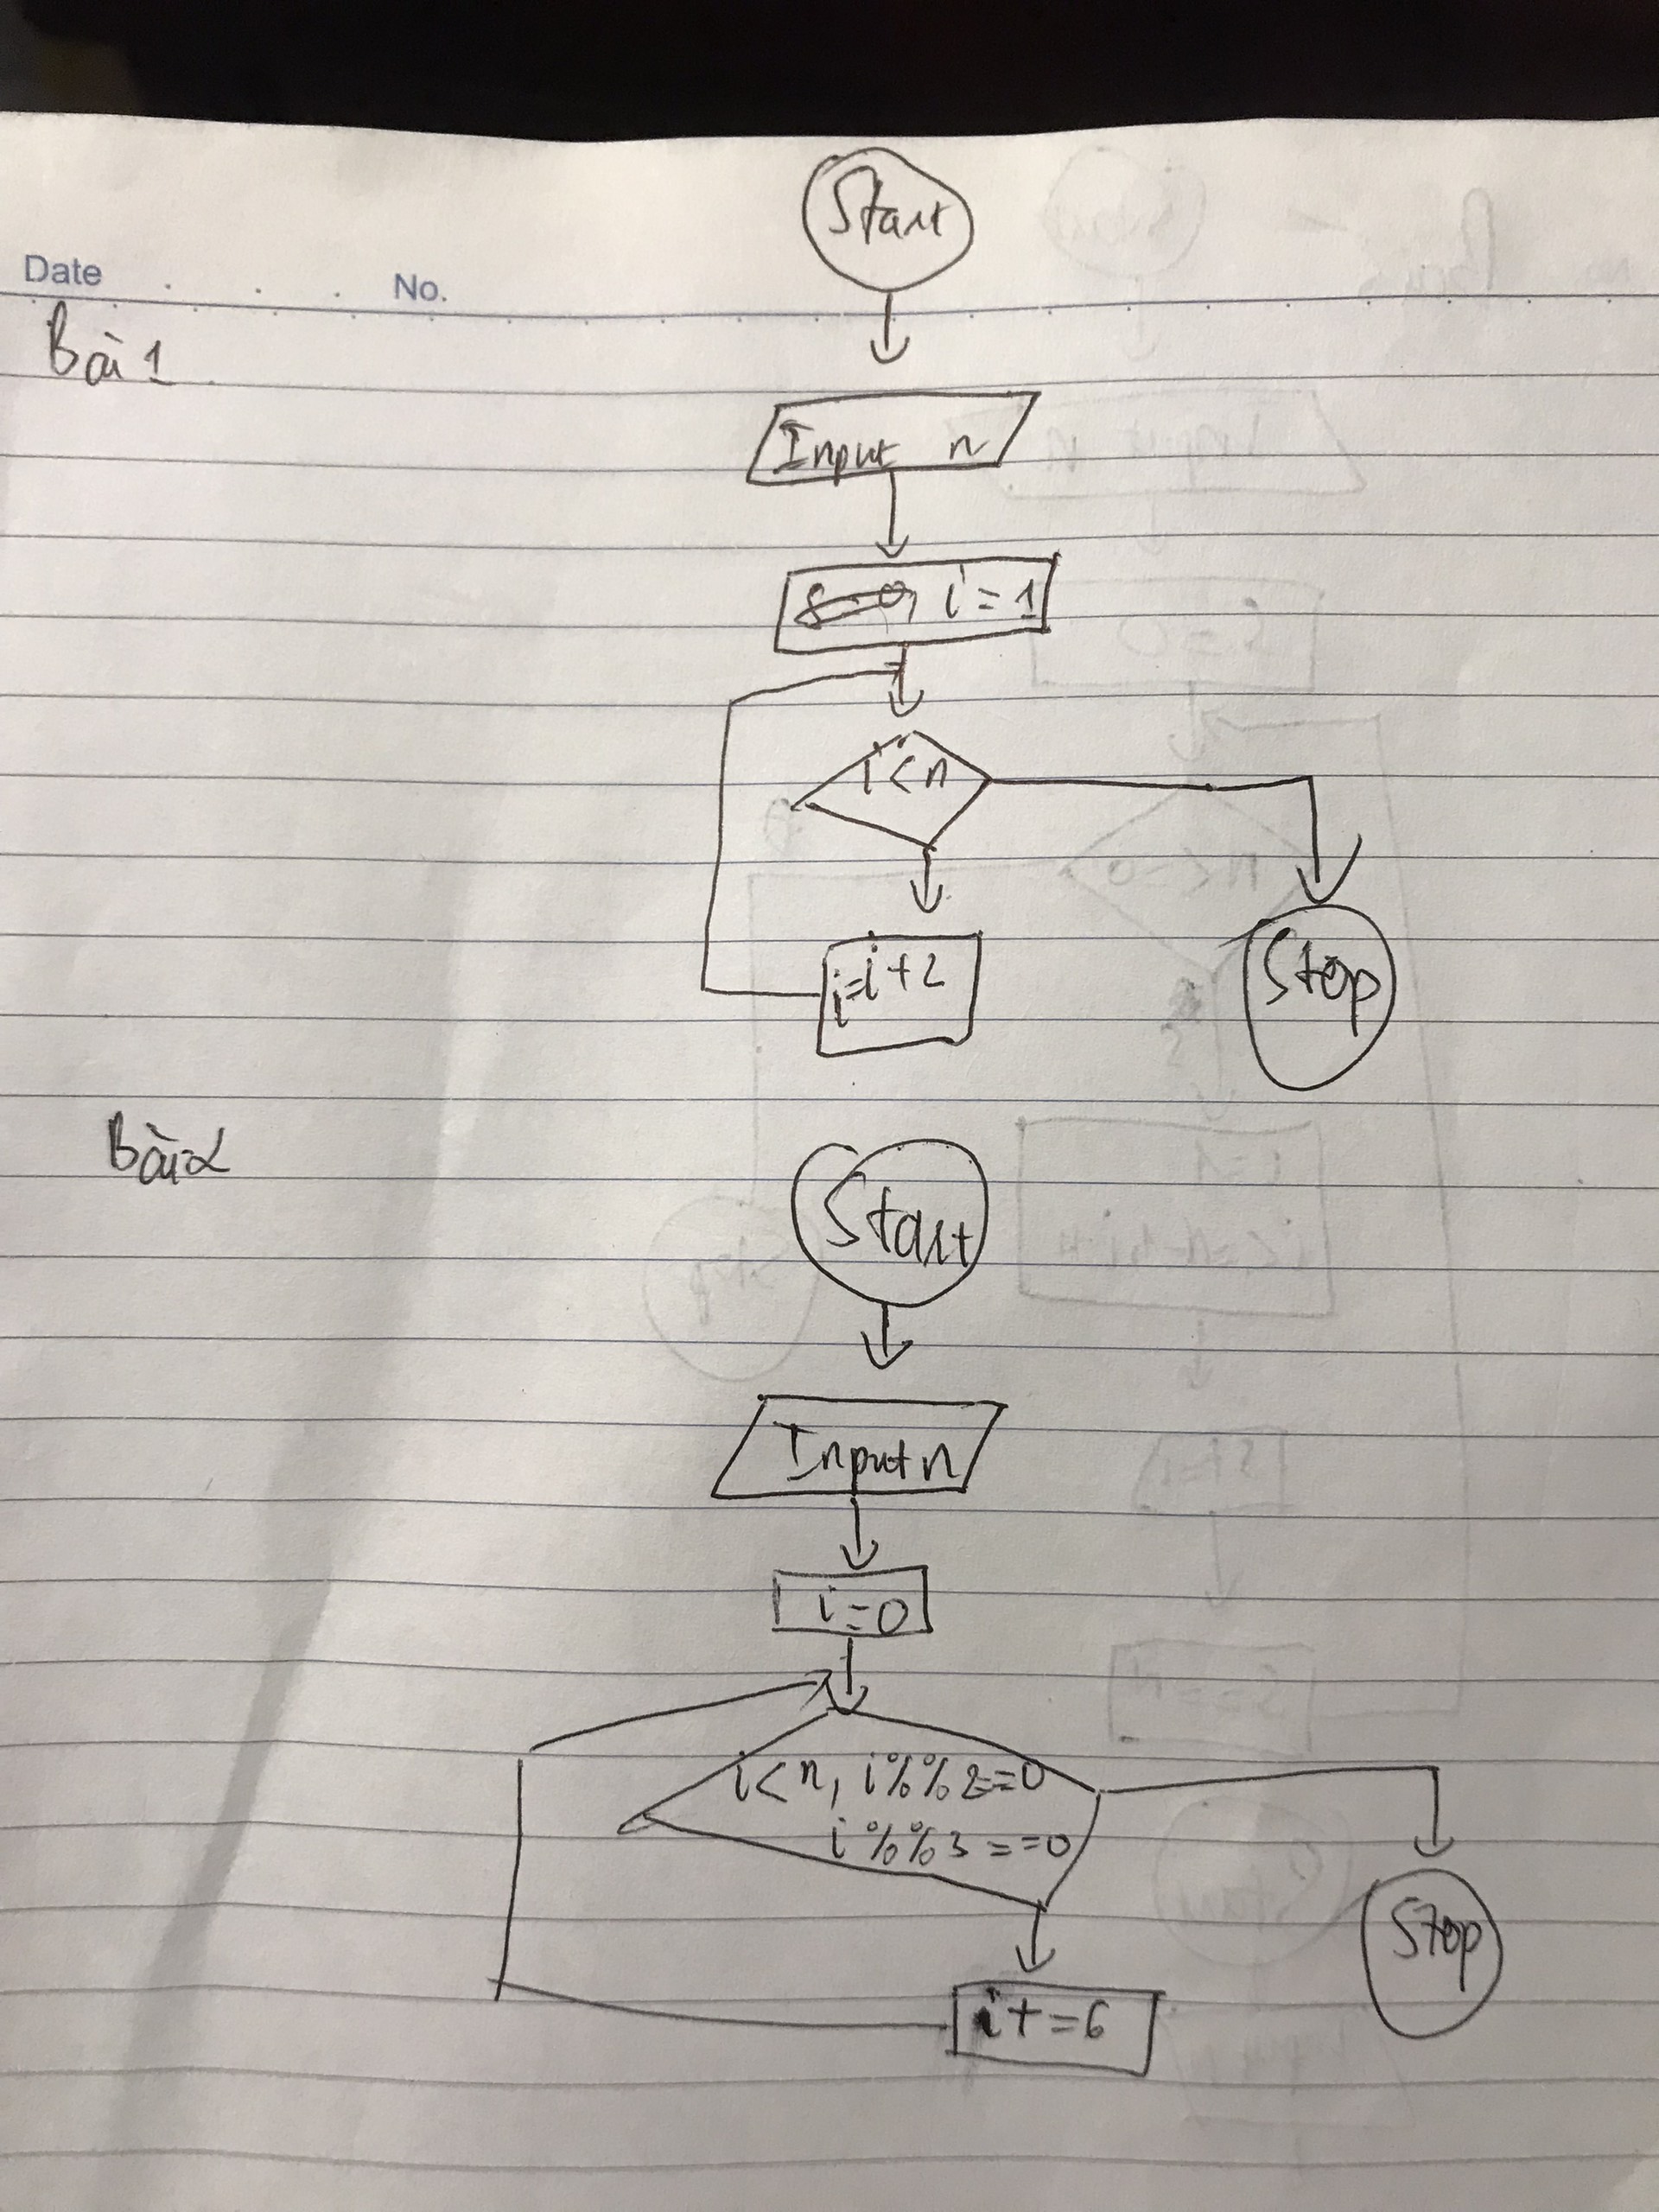 Start
Date No.
Bài 1
Input n
i = 1
i < n
i=i+2
Stop
Bài 2
Start
Input n
i=0
i<n, i%%2==0
i%%3==0
i+=6
Stop